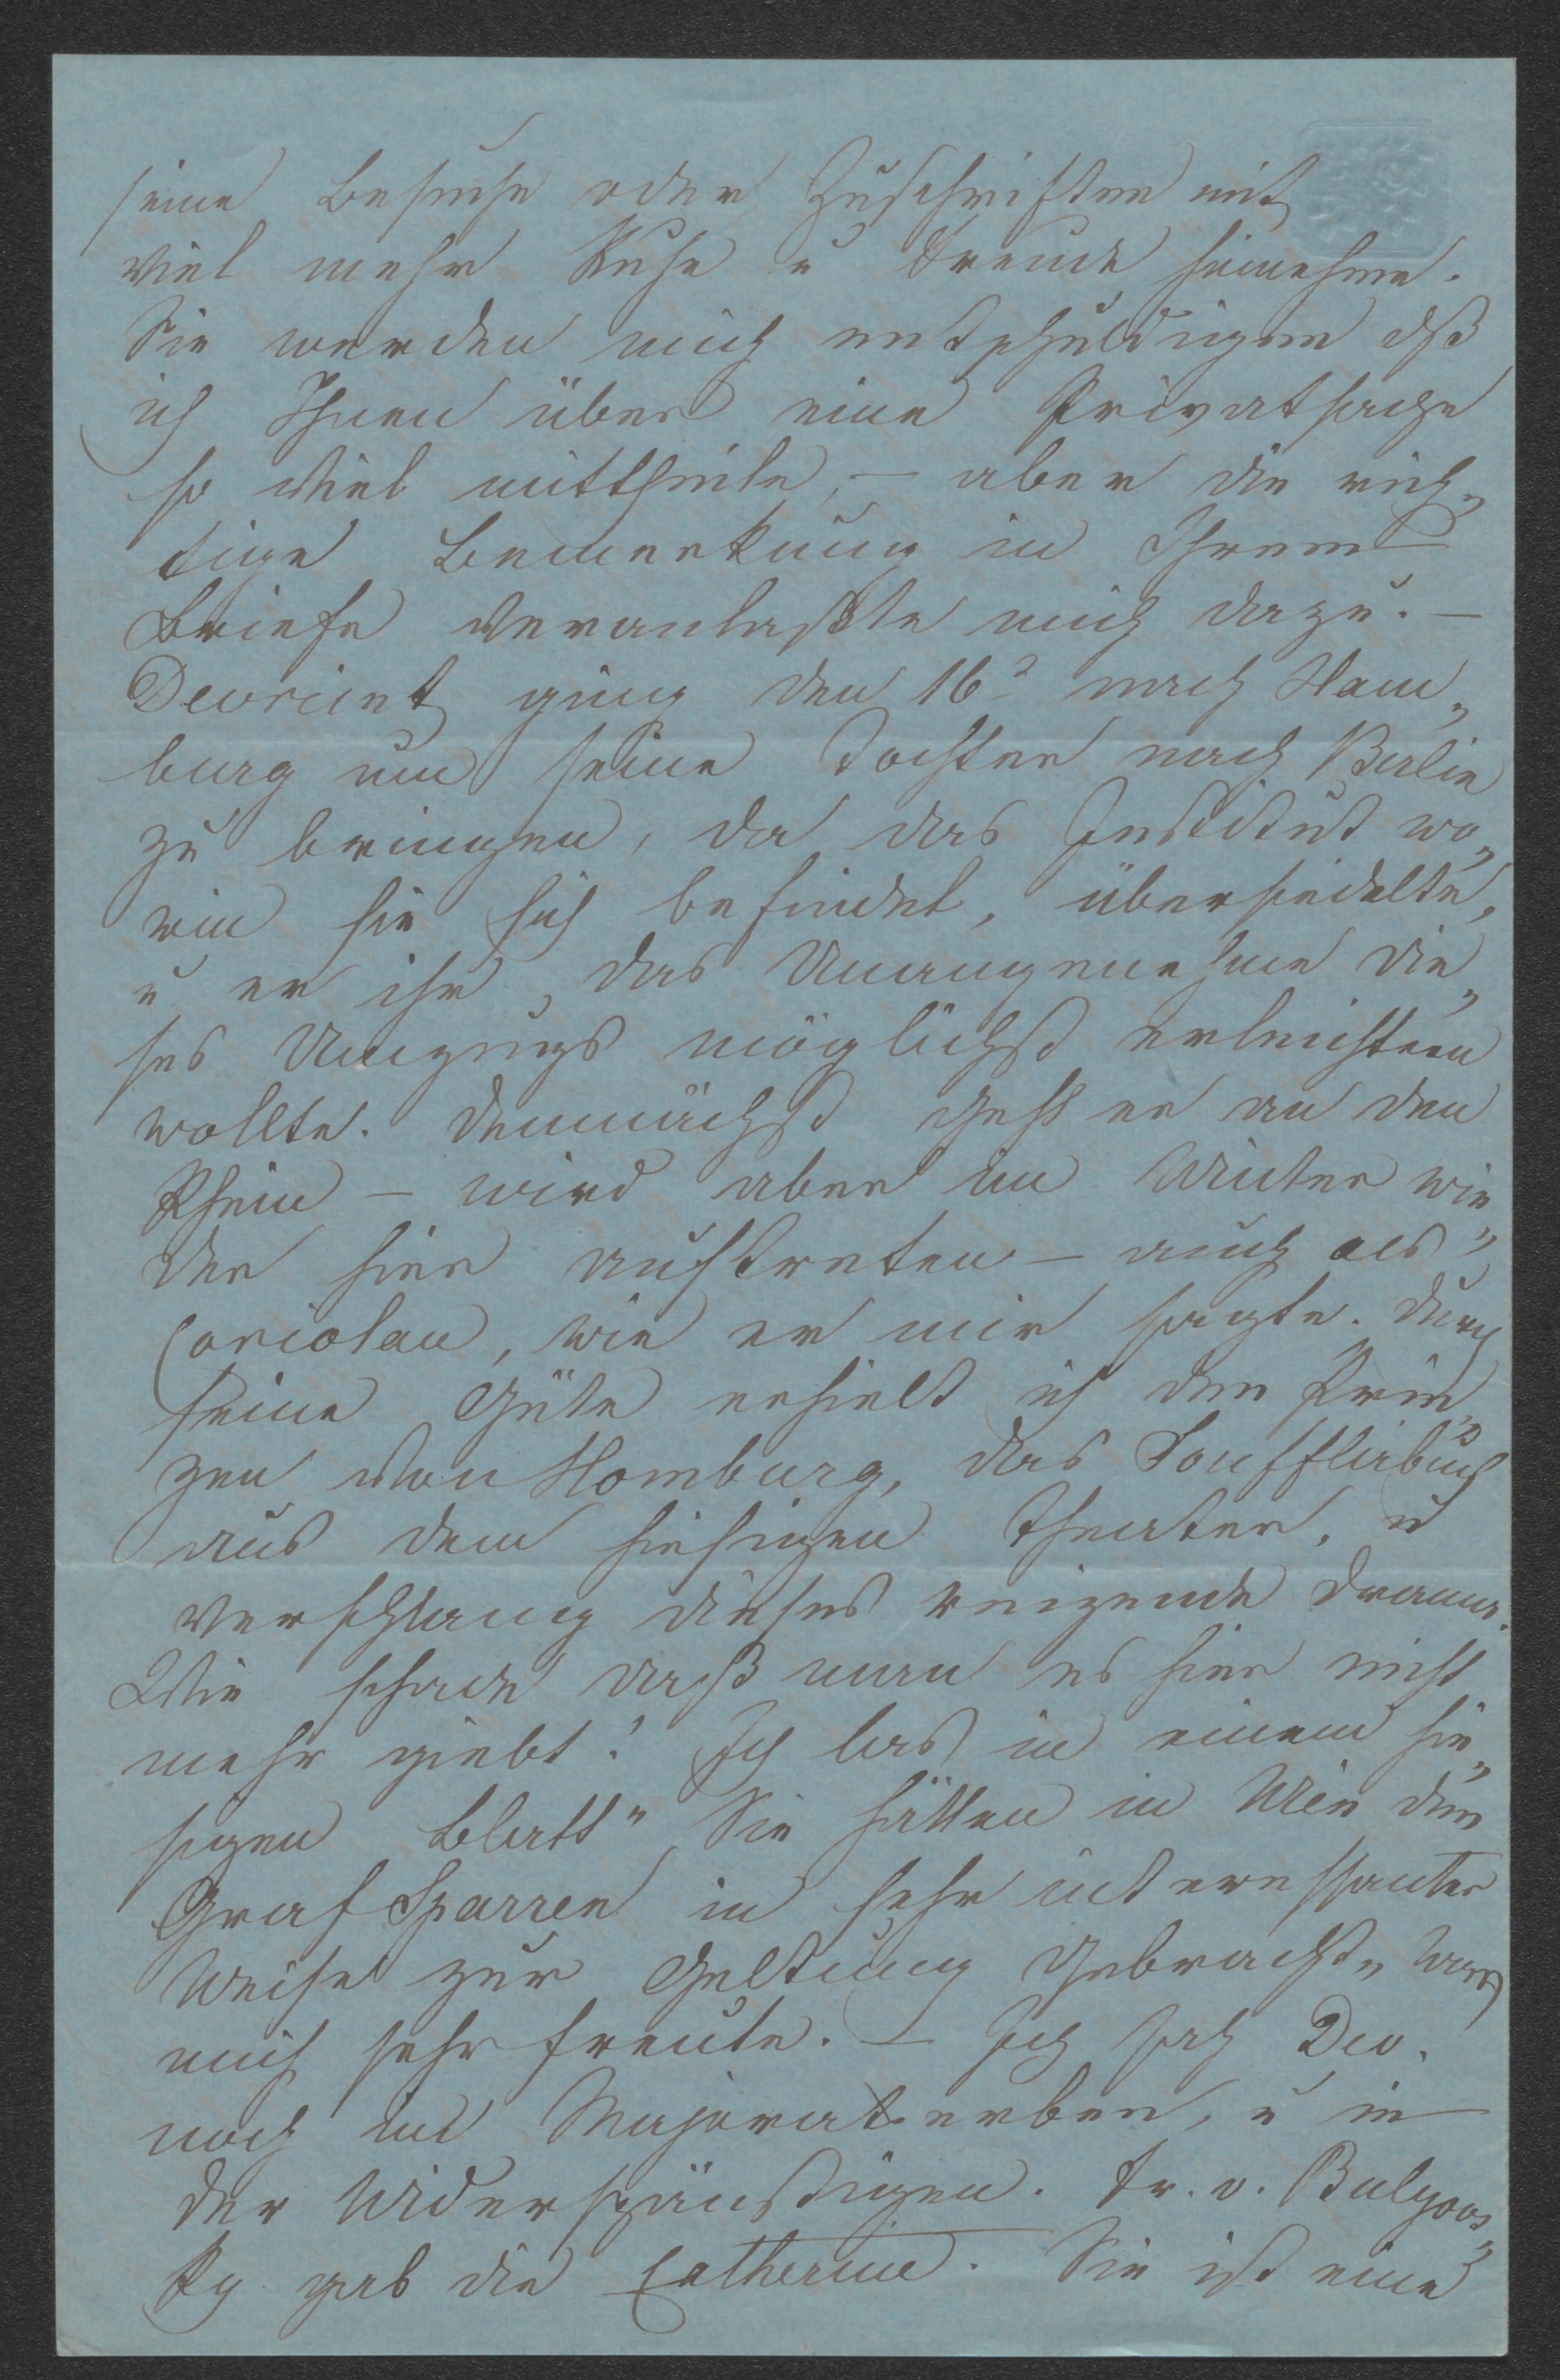 seine Besuche oder Zuschriften mit
viel mehr Ruhe u Freude hinnehme.
Sie werden mich entschuldigen dß
ich Ihnen über eine Privatsache
so viel mittheile, – aber die rich„
tige Bemerkung in Ihrem
Briefe veranlaßte mich dazu. –
Devrient ging den 16t nach Ham„
burg um seine Tochter nach Berlin
zu bringen, da das Institut wo„
rin sie sich befindet, übersiedelte,
u er ihr, das Unangenehme die„
ses Umzugs möglichst erleichtern
wollte. Demnächst geht er an den
Rhein – wird aber im Winter wie„
der hier auftreten – auch als
Coriolan, wie er mir sagte. Durch
seine Güte erhielt ich den Prin„
zen von Homburg, das Soufflirbuch
aus dem hiesigen Theater, u
verschlang dieses reizende Drama.
Wie schade daß man es hier nicht
mehr giebt! Ich las in einem hie„
sigen Blatt „Sie hätten in Wien den
Graf Sparren in sehr interessanter
Weise zur Geltung gebracht„ was
mich sehr freute. – Ich sah Dev.
noch im Majoratserben, u in
der Widerspänstigen. Fr. v. Bulyovs„
ky gab die Catherine. Sie ist eine